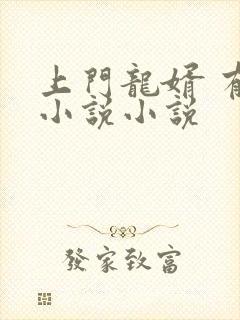 上門龍婿
小說小說
發家致富